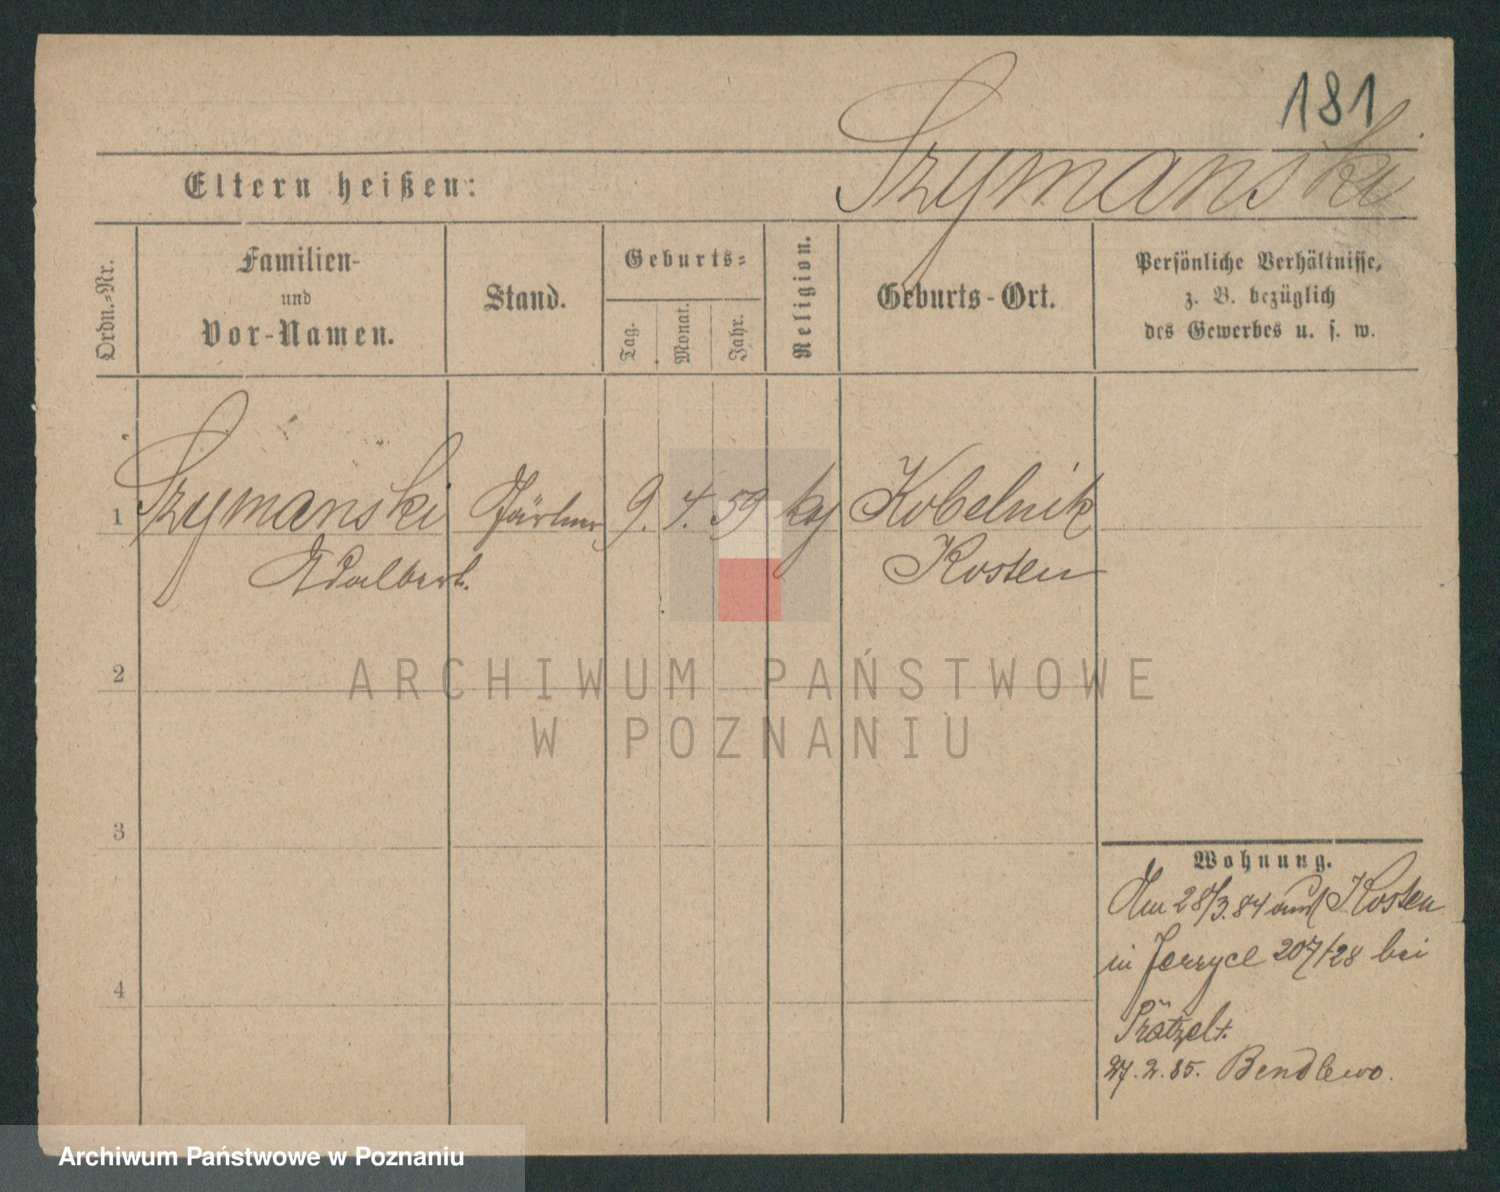 181
Szymanski
Eltern heißen:
Ordn.=Nr.
Familien-
und
Vor-Namen.
Stand.
Geburts=
Tag.
Monat.
Jahr.
Religion.
Geburts-Ort.
Persönliche Verhältnisse,
z. B. bezüglich
des Gewerbes u. s. w.
1 Szymanski 9. 4. 59 Kobelnik
Adalbert. Kosten
2
3
4
Wohnung.
Am 28/3.84 aus Kosten
in Jerzyce 207/28 bei
27.2.85. Bendlewo.
ARCHIWUM PAŃSTWOWE
W POZNANIU
Archiwum Państwowe w Poznaniu